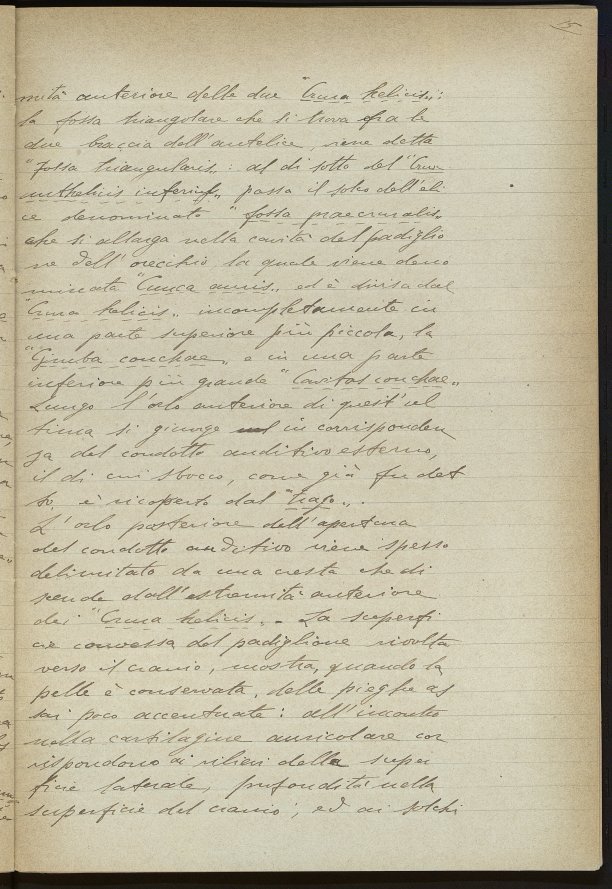 5
mità anteriore delle due "Crura helicis„:
la fossa triangolare che si trova fra le
due braccia dell'antelice, viene detta
"Fossa triangularis„: al di sotto del "Crus
anthelicis inferius„ passa il solco dell'eli
ce denominato "fossa praecruralis„
che si allarga nella cavità del padiglio
ne dell'orecchio la quale viene deno
minata "Conca auris„ ed è divisa dal
"Crura helicis„ incompletamente in
una parte superiore più piccola, la
"Cimba conchae„ e in una parte
inferiore più grande "Cavitas conchae„
Lungo l'orlo anteriore di quest'ul
tima si giunge in corrisponden
za del condotto auditivo esterno,
il di cui sbocco, come già fu det
to, è ricoperto dal "Trago„.
L'orlo posteriore dell'apertura
del condotto auditivo viene spesso
delimitato da una cresta che di
scende dall'estremità anteriore
dei "Crura helicis„. La superfi
cie convessa del padiglione rivolta
verso il cranio, mostra, quando la
pelle è conservata, delle pieghe as
sai poco accentuate: all'incontro
nella cartilagine auricolare cor
rispondono ai rilievi della super
ficie laterale, profondità nella
superficie del cranio; ed ai solchi